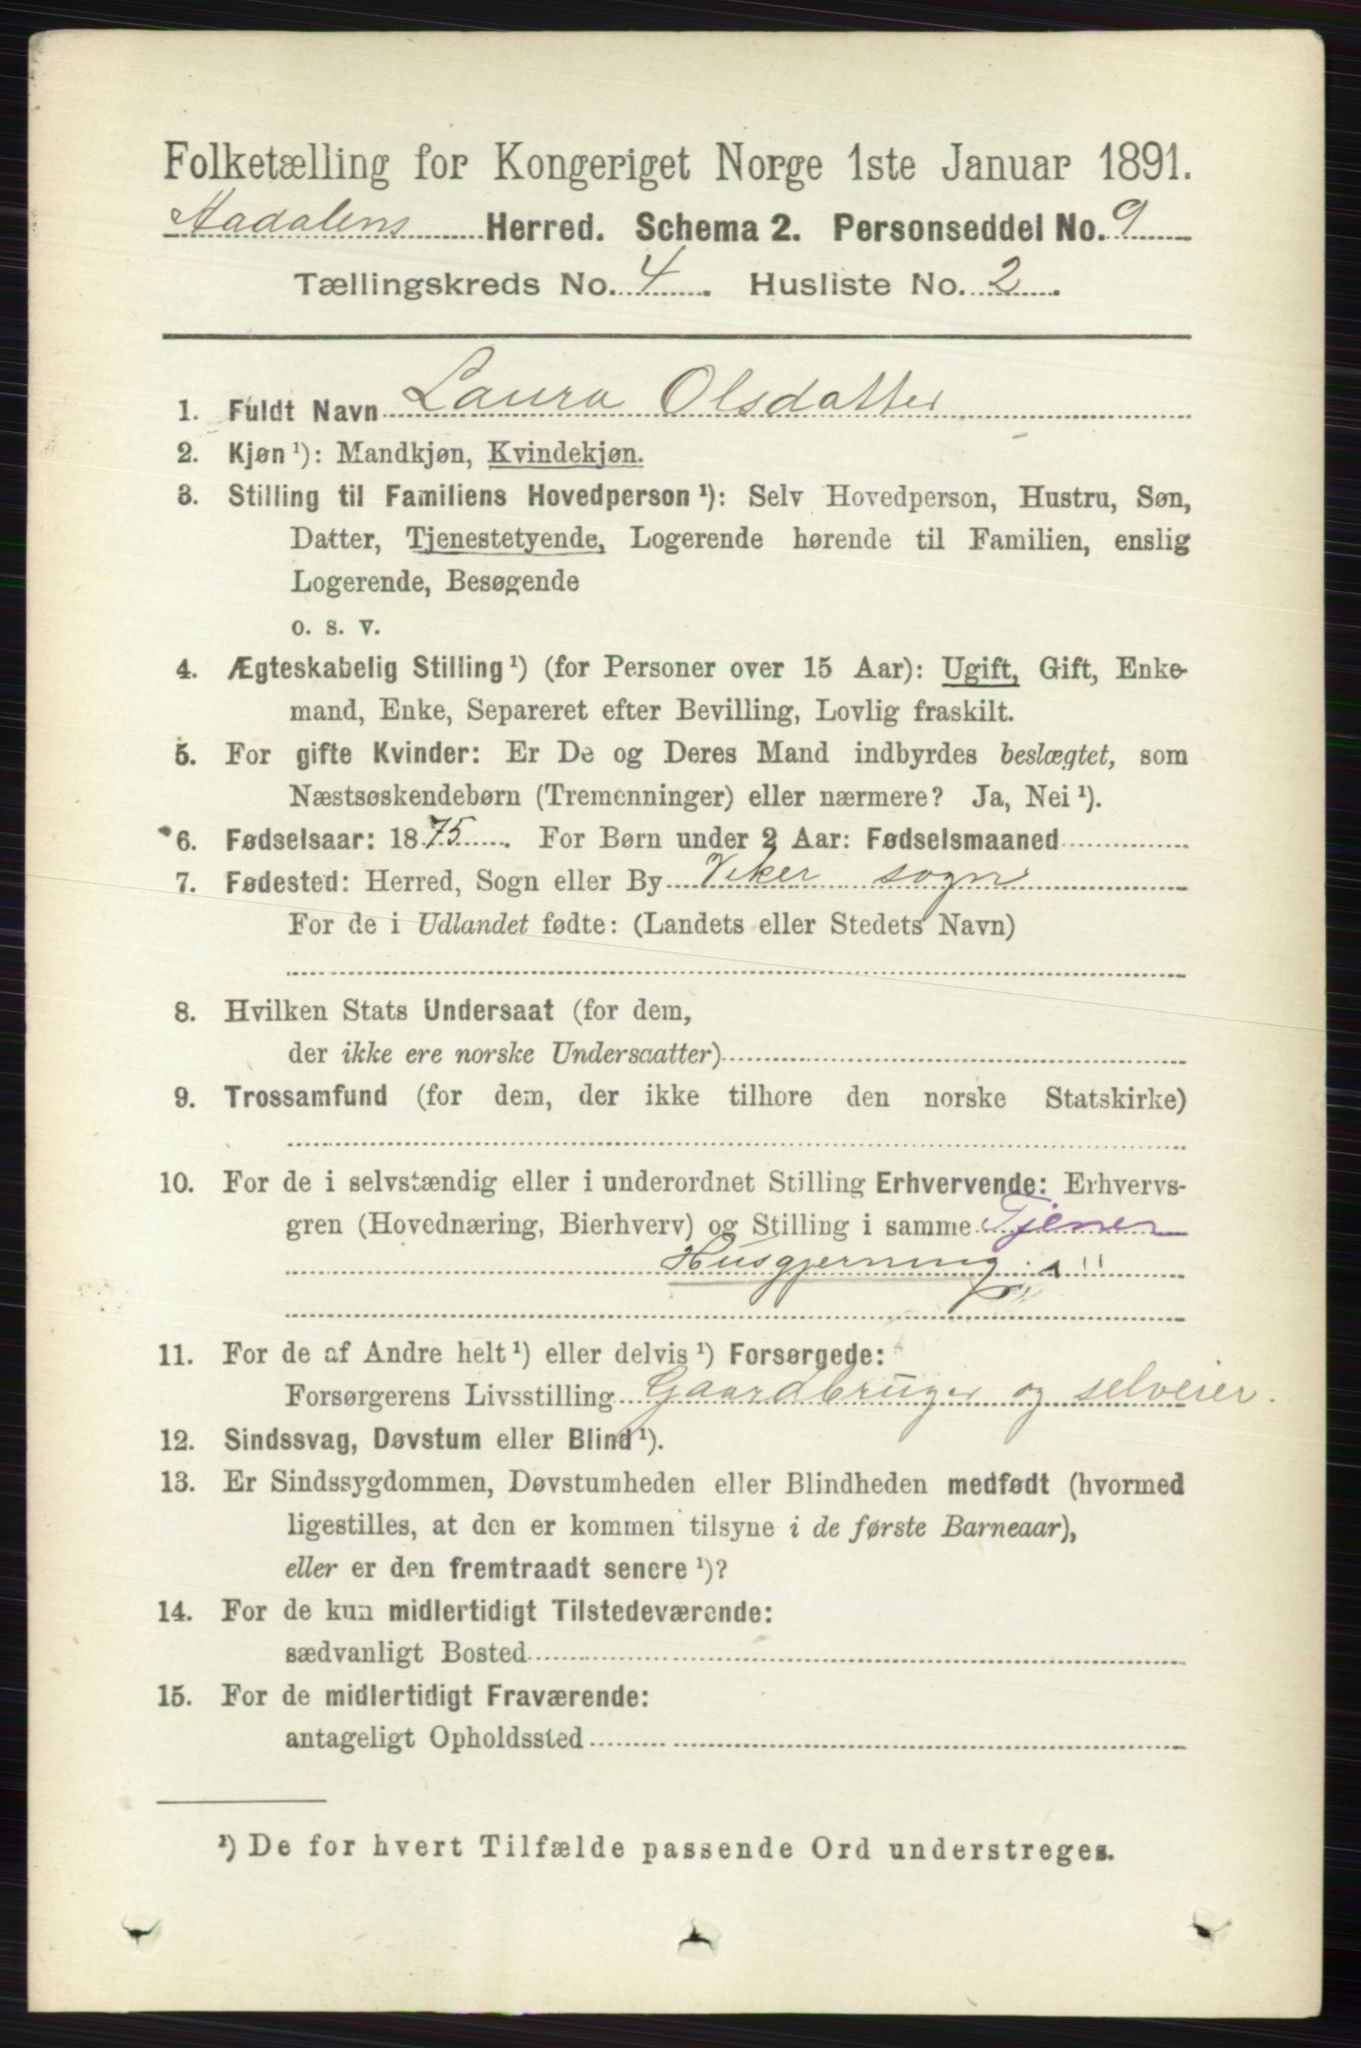 Folketælling for Kongeriget Norge 1ste Januar 1891.
Aadalens Herred. Schema 2. Personseddel No. 9
Tællingskreds No. 4. Husliste No. 2.
1. Fuldt Navn Laura Olsdatter
2. Kjøn ¹): Mandkjøn, Kvindekjøn.
3. Stilling til Familiens Hovedperson ¹): Selv Hovedperson, Hustru, Søn,
Datter, Tjenestetyende, Logerende hørende til Familien, enslig
Logerende, Besøgende
o. s. v.
4. Ægteskabelig Stilling ¹) (for Personer over 15 Aar): Ugift, Gift, Enke-
mand, Enke, Separeret efter Bevilling, Lovlig fraskilt.
5. For gifte Kvinder: Er De og Deres Mand indbyrdes beslægtet, som
Næstsøskendebørn (Tremenninger) eller nærmere? Ja, Nei ¹).
6. Fødselsaar: 1875. For Børn under 2 Aar: Fødselsmaaned
7. Fødested: Herred, Sogn eller By Viker sogn
For de i Udlandet fødte: (Landets eller Stedets Navn)
8. Hvilken Stats Undersaat (for dem,
der ikke ere norske Undersaatter)
9. Trossamfund (for dem, der ikke tilhøre den norske Statskirke)
10. For de i selvstændig eller i underordnet Stilling Erhvervende: Erhvervs-
gren (Hovednæring, Bierhverv) og Stilling i samme Tjener
Husgjerning
11. For de af Andre helt ¹) eller delvis ¹) Forsørgede:
Forsørgerens Livsstilling Gaardbruger og selveier.
12. Sindssvag, Døvstum eller Blind ¹).
13. Er Sindssygdommen, Døvstumheden eller Blindheden medfødt (hvormed
ligestilles, at den er kommen tilsyne i de første Barneaar),
eller er den fremtraadt senere ¹)?
14. For de kun midlertidigt Tilstedeværende:
sædvanligt Bosted
15. For de midlertidigt Fraværende:
antageligt Opholdssted
¹) De for hvert Tilfælde passende Ord understreges.